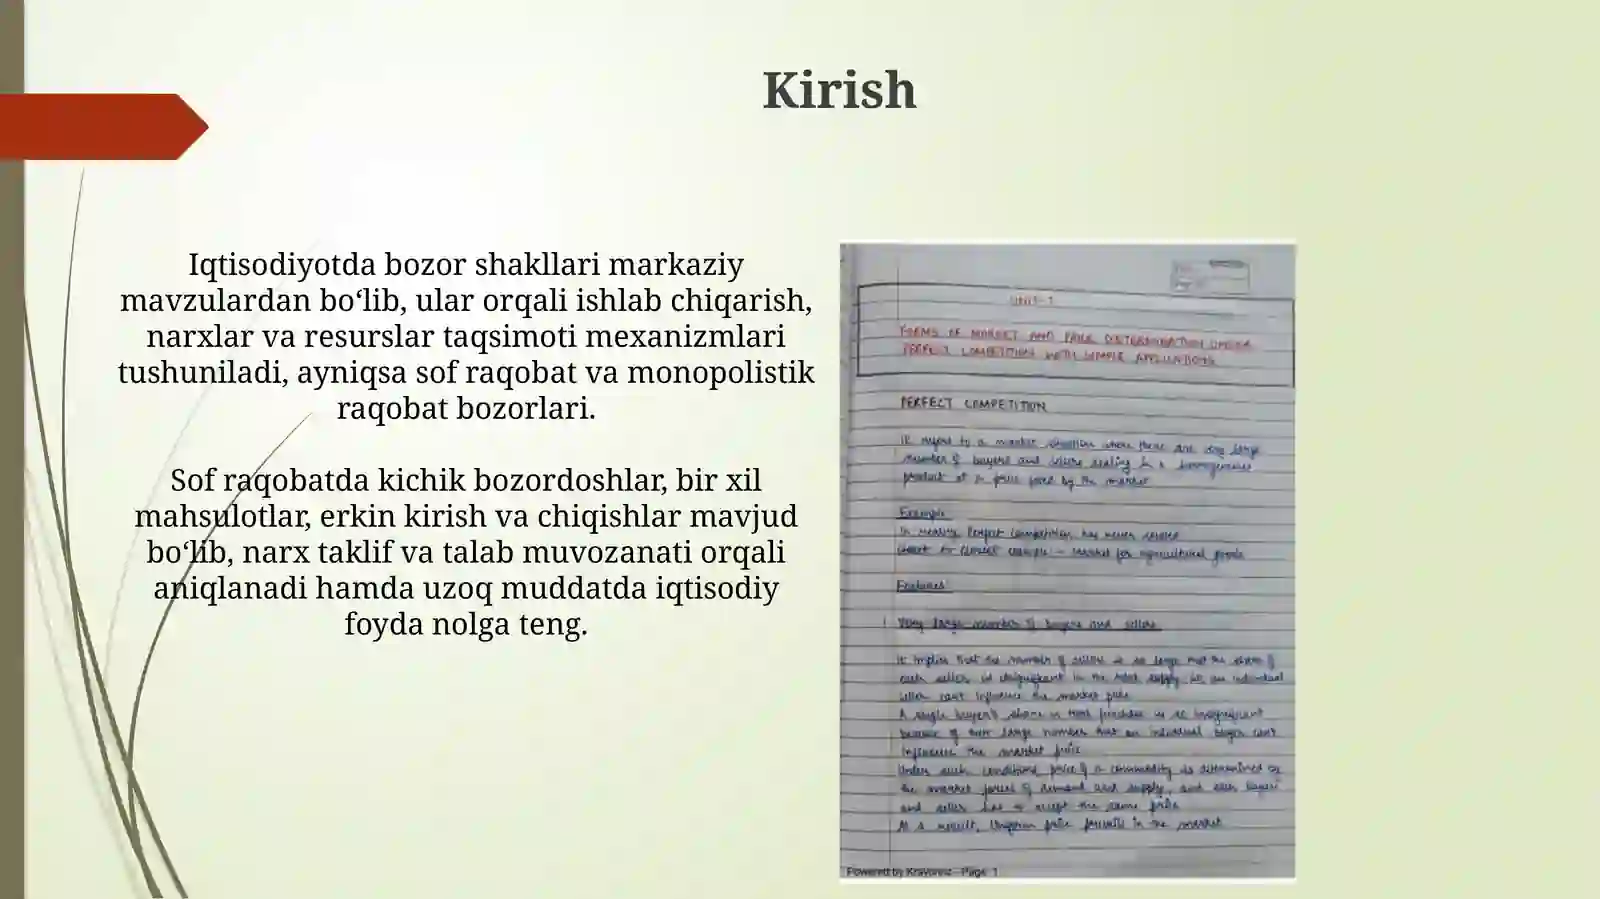 Kirish
Iqtisodiyotda bozor shakllari markaziy
mavzulardan bo‘lib, ular orqali ishlab chiqarish,
narxlar va resurslar taqsimoti mexanizmlari
tushuniladi, ayniqsa sof raqobat va monopolistik
raqobat bozorlari.
Sof raqobatda kichik bozordoshlar, bir xil
mahsulotlar, erkin kirish va chiqishlar mavjud
bo‘lib, narx taklif va talab muvozanati orqali
aniqlanadi hamda uzoq muddatda iqtisodiy
foyda nolga teng.
UNIT-1
FORMS OF MARKET AND PRICE DETERMINATION UNDER
PERFECT COMPETITION WITH SIMPLE APPLICATIONS
PERFECT COMPETITION
It refers to a market situation where there are very large
number of buyers and sellers dealing in a homogeneous
product at a price fixed by the market
Example
In reality Perfect Competition has never existed
example - market for agricultural goods
Features
Very large number of buyers and sellers
It implies that the number of sellers is so large that the share of
each seller is insignificant in the total supply an individual
seller can't influence the market price
A single buyer's share in total purchase is so insignificant
because of their large number that an individual buyer can't
influence the market price
Under such conditions price of a commodity is determined by
the market forces of demand and supply, and each buyer
and seller has to accept the same price
As a result, Uniform price prevails in the market
Powered by - Page 1